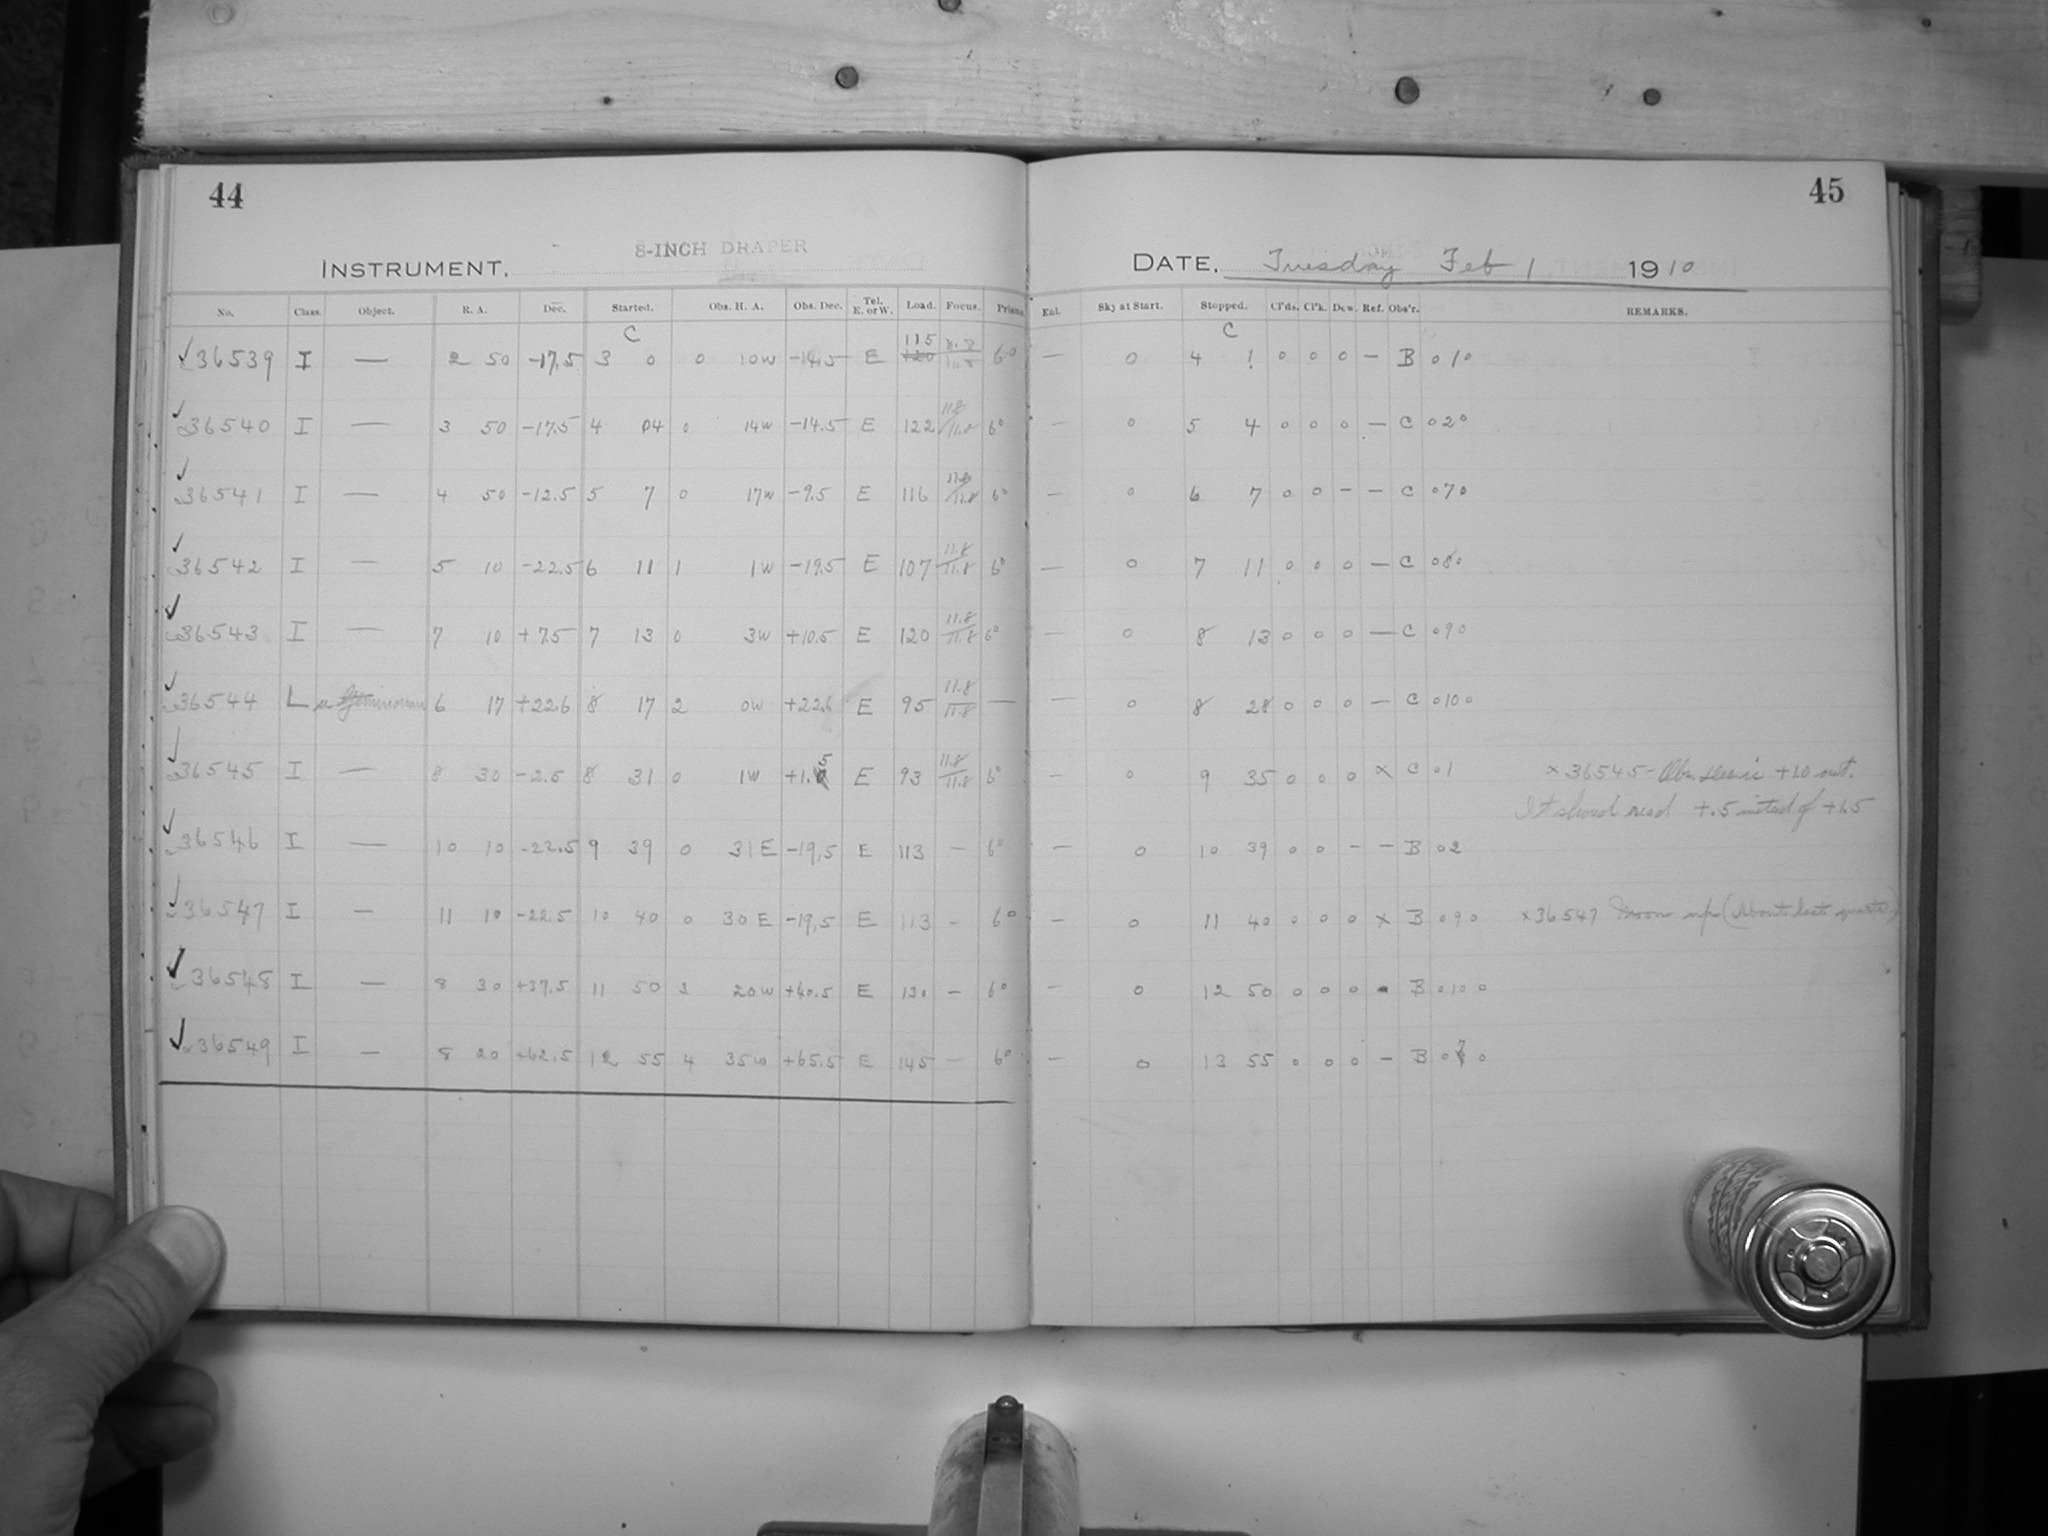 44
45
8-INCH DRAPER
INSTRUMENT.
DATE. Tuesday Feb 1 1910
No. Class. Object. R. A. Dec. Started. Obs. H. A. Obs. Dec. Tel. E. or W. Load. Focus. Prism. Enl. Sky at Start. Stopped. Cl'ds. Cl'k. Dew. Ref. Obs'r. REMARKS.
C C
✓ 36539 I — 2 50 -17.5 3 0 0 10W -14.5 E 120 115 6° — 0 4 1 0 0 0 — B 010
✓ 36540 I — 3 50 -17.5 4 04 0 14W -14.5 E 122 11.8/11.8 6° — 0 5 4 0 0 0 — C 020
✓ 36541 I — 4 50 -12.5 5 7 0 17W -9.5 E 116 11.8/11.8 6° — 0 6 7 0 0 — — C 070
✓ 36542 I — 5 10 -22.5 6 11 1 1W -19.5 E 107 11.8/11.8 6° — 0 7 11 0 0 0 — C 080
✓ 36543 I — 7 10 +7.5 7 13 0 3W +10.5 E 120 11.8/11.8 6° — 0 8 13 0 0 0 — C 090
✓ 36544 L 6 17 +22.6 8 17 2 0W +22.6 E 95 11.8/11.8 — — 0 8 28 0 0 0 — C 0100
✓ 36545 I — 8 30 -2.5 8 31 0 1W +1.5 E 93 11.8/11.8 6° — 0 9 35 0 0 0 × C 01 × 36545 - Obs. Dec is +1.0 out.
It should read +.5 insted of +1.5
✓ 36546 I — 10 10 -22.5 9 39 0 31E -19.5 E 113 — 6° — 0 10 39 0 0 — — B 02
✓ 36547 I — 11 10 -22.5 10 40 0 30E -19.5 E 113 — 6° — 0 11 40 0 0 0 × B 090 ×36547 Moon up (About last quarter)
✓ 36548 I — 8 30 +37.5 11 50 3 20W +40.5 E 130 — 6° — 0 12 50 0 0 0 - B 0100
✓ 36549 I — 8 20 +62.5 12 55 4 35W +65.5 E 145 — 6° — 0 13 55 0 0 0 — B 070